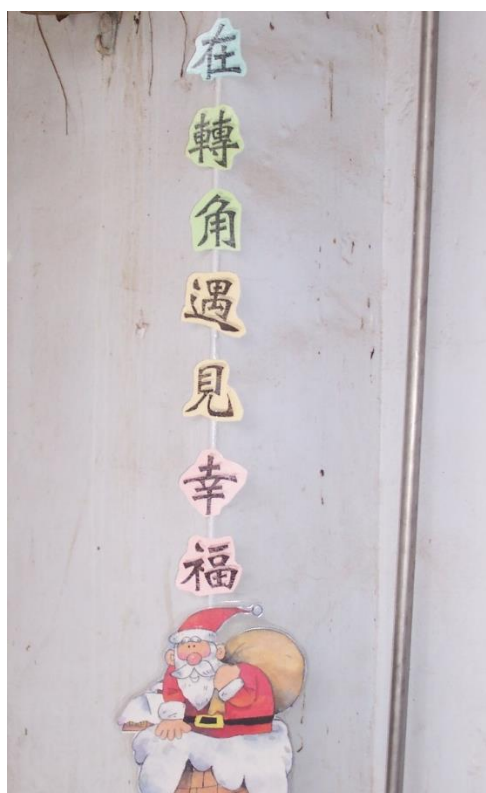 在轉角遇見幸福